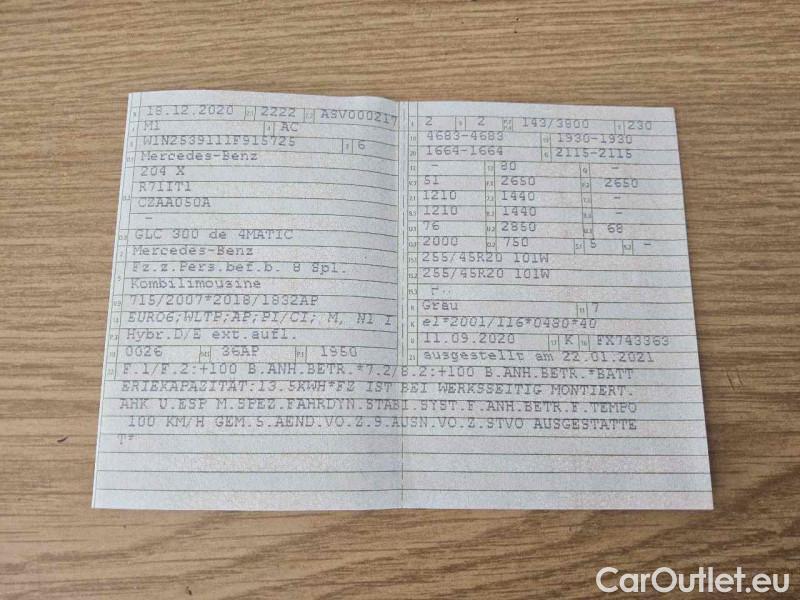 18.12.2020 2222 ASV000217
M1 AC
W1N2539111F915725 6
Mercedes-Benz
204 X
R7IIT1
CZAA050A
-
GLC 300 de 4MATIC
Mercedes-Benz
Fz.z.Pers.bef.b. 8 Spl.
Kombilimousine
715/2007*2018/1832AP
EURO6;WLTP;AP;PI/CI; M, N1 I
Hybr.D/E ext.aufl.
0026 36AP 1950
2 2 143/3800 230
4683-4683 1930-1930
1664-1664 2115-2115
- 80 -
51 2650 2650
1210 1440 -
1210 1440 -
76 2850 68
2000 750 5 -
255/45R20 101W
255/45R20 101W
-
Grau 7
e1*2001/116*0480*40
11.09.2020 K FX743363
ausgestellt am 22.01.2021
F.1/F.2:+100 B.ANH.BETR.*7.2/8.2:+100 B.ANH.BETR.*BATT
ERIEKAPAZITÄT:13.5KWH*FZ IST BEI WERKSSEITIG MONTIERT.
AHK U.ESP M.SPEZ.FAHRDYN.STABI.SYST.F.ANH.BETR.F.TEMPO
100 KM/H GEM.5.AEND.VO.Z.9.AUSN.VO.Z.STVO AUSGESTATTE
T*
CarOutlet.eu